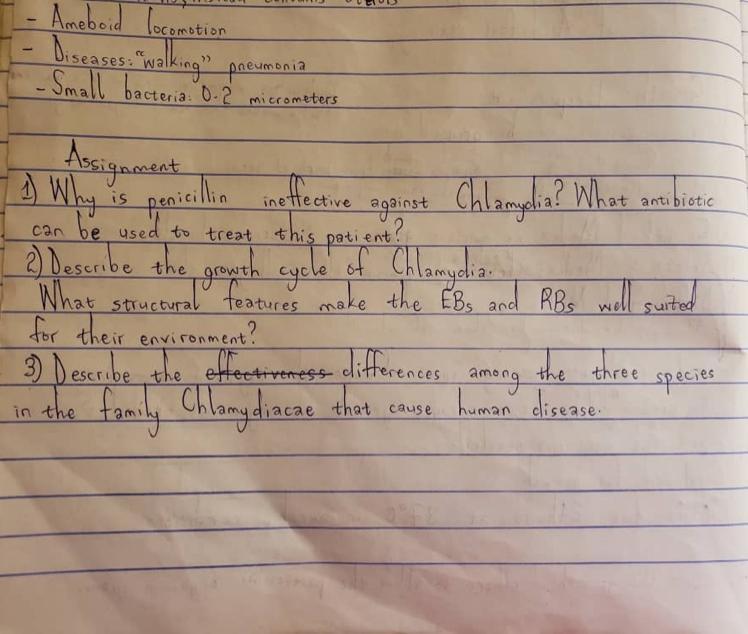 - Ameboid locomotion
- Diseases: "walking" pneumonia
- Small bacteria: 0.2 micrometers
Assignment
1) Why is penicillin ineffective against Chlamydia? What antibiotic
can be used to treat this patient?
2) Describe the growth cycle of Chlamydia.
What structural features make the EBs and RBs well suited
for their environment?
3) Describe the effectiveness differences among the three species
in the family Chlamydiacae that cause human disease.